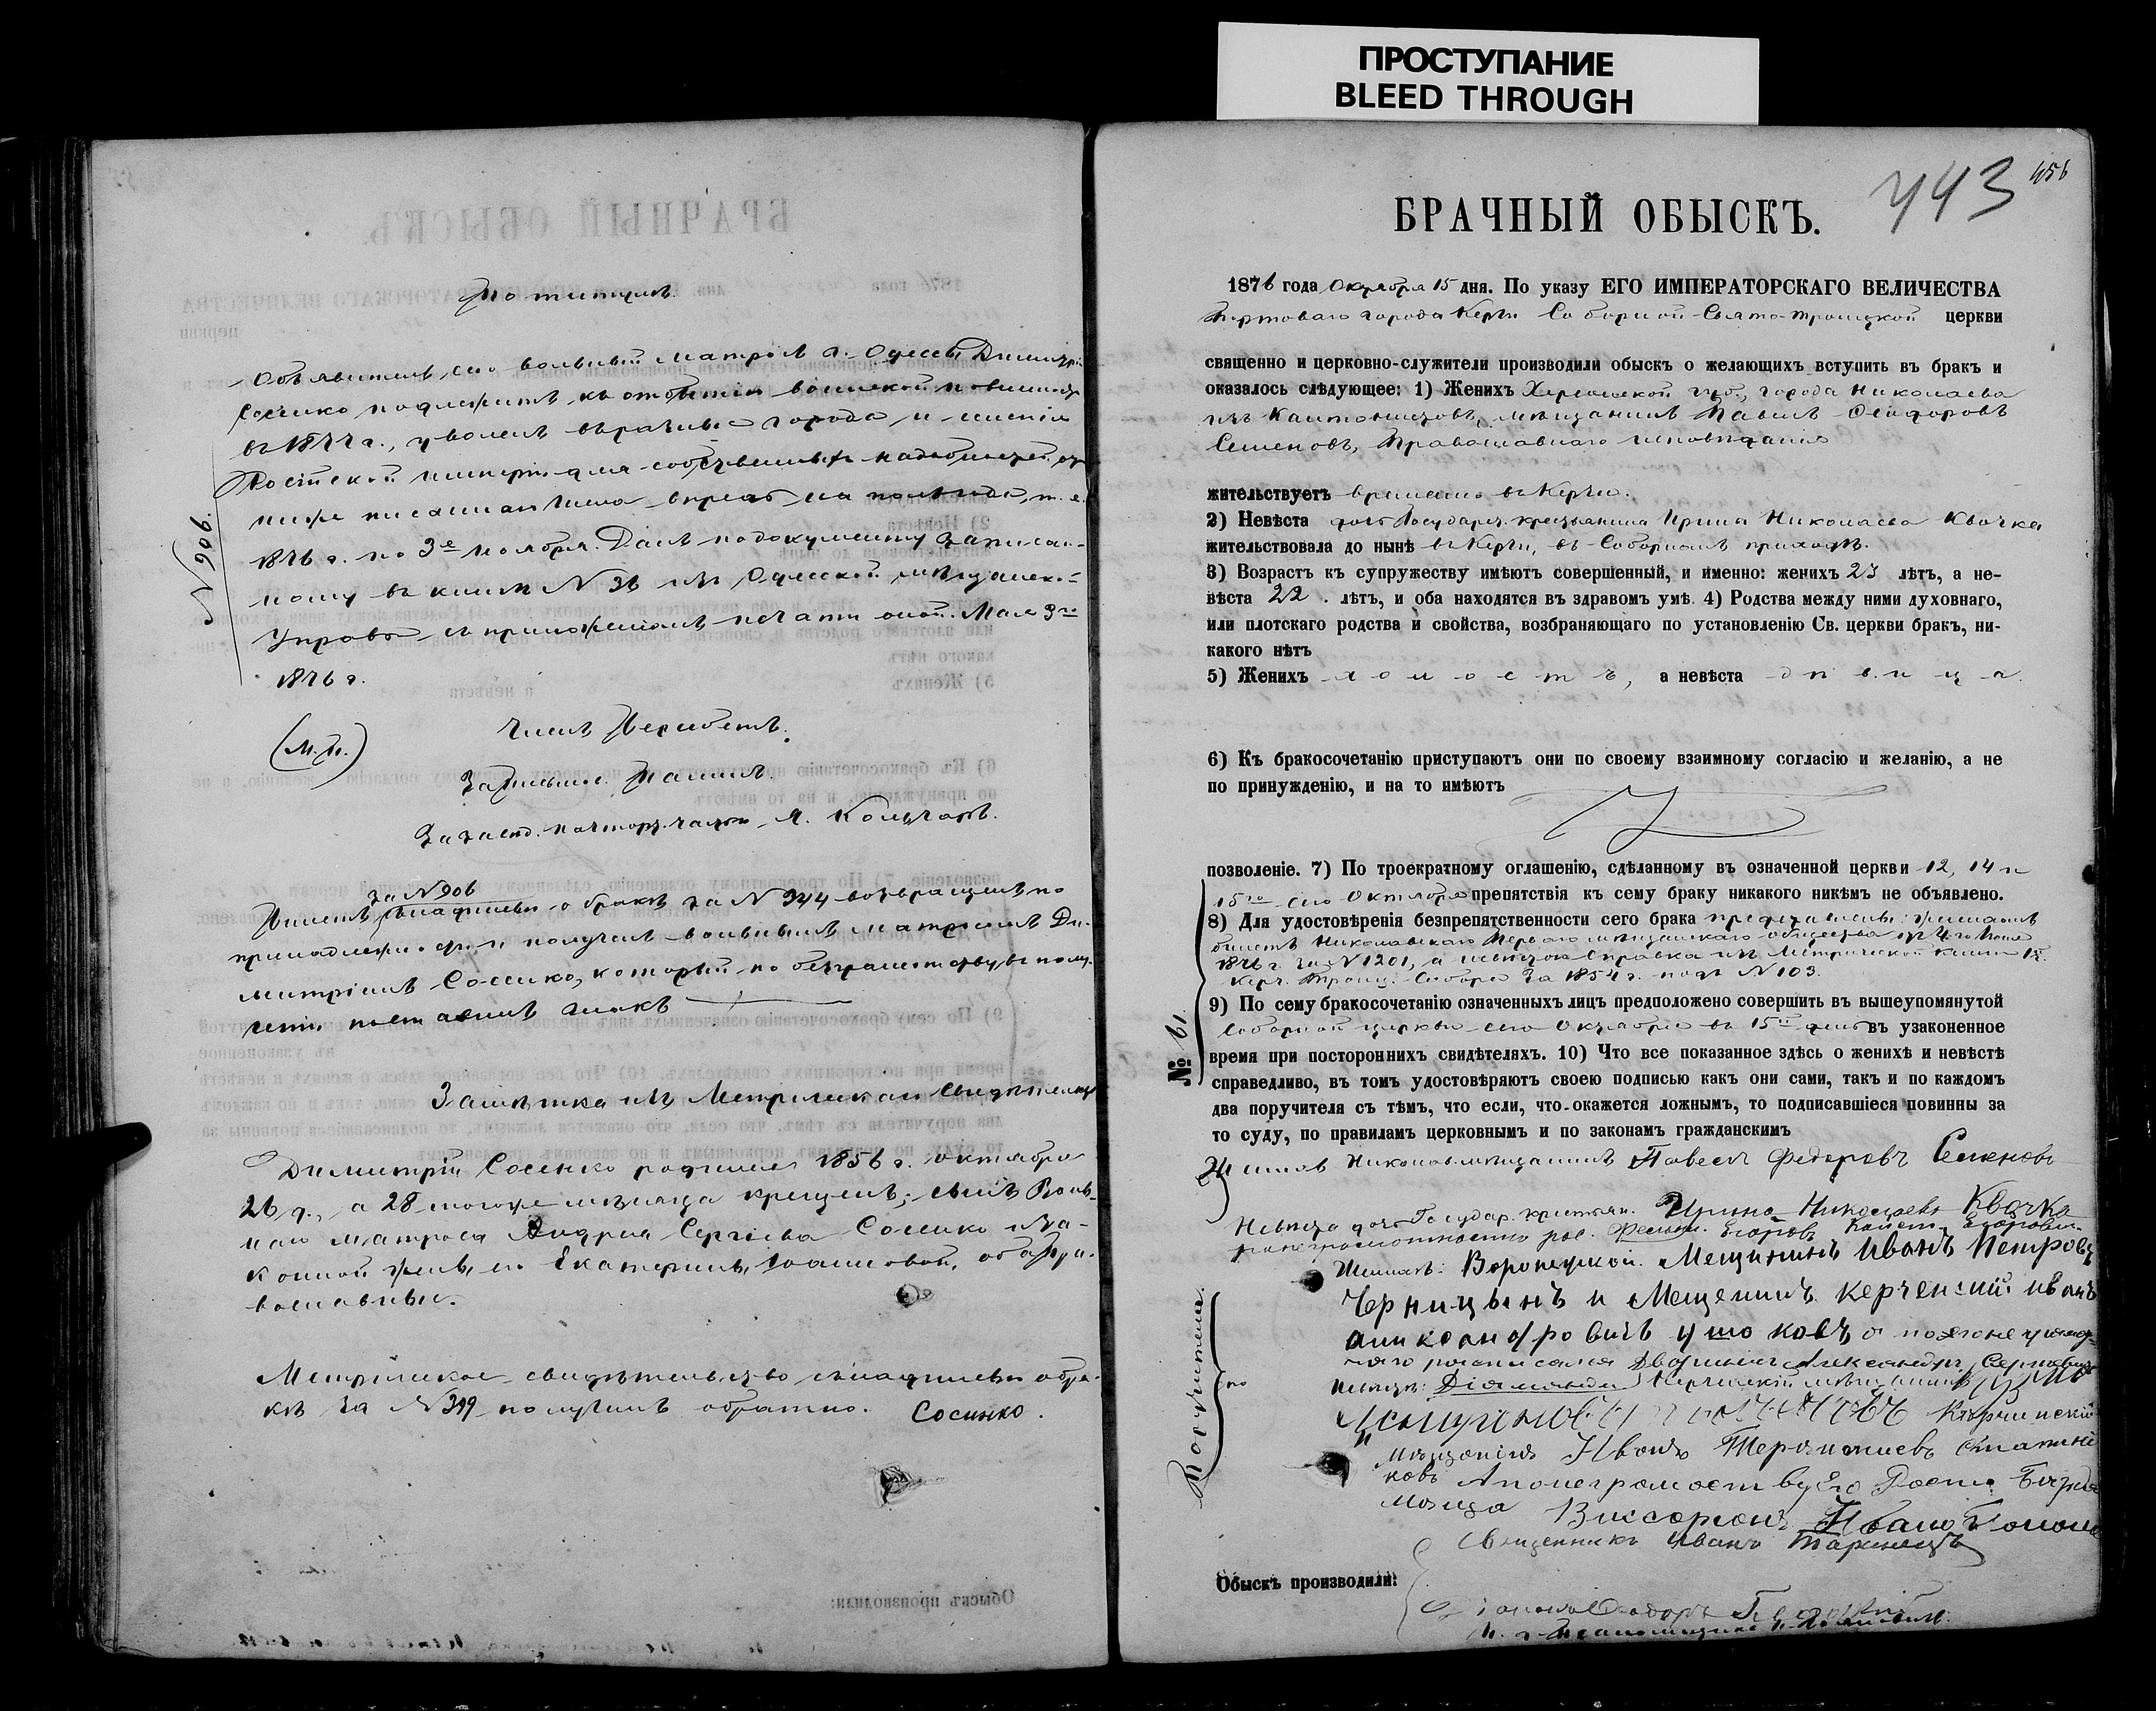 ПРОСТУПАНИЕ
BLEED THROUGH
По титулѣ.
Объявитель сего вольный матросъ г. Одессы Димитрій
Сосенко подлежитъ къ отбытію воинской повинности
въ 1877 г., уволенъ въ разные города и селенія
Россійской имперіи для собственныхъ надобностей отъ
ниже писаннаго числа впредь на полгода, т. е.
1876 г. по 3е ноября. Данъ по документу записан-
ному въ книгѣ № 36 изъ Одесской мѣщанской
Управы съ приложеніемъ печати оной. Мая 3го
1876 г.
№ 906.
(М. П.)
Членъ
За
А.
за № 906
Билетъ съ надписью о бракѣ за № 344 возвращенъ по
принадлежности и полученъ вольнымъ матросомъ Ди-
митріемъ Сосенко, который по безграмотству въ полу-
ченіи поставилъ знакъ
Замѣтка изъ Метрическаго свидѣтельства
Димитрій Сосенко родился 1856 г. октября
26 д., а 28 тогоже мѣсяца крещенъ; сынъ Воль-
наго матроса Андрея Сергіева Сосенко и за-
конной жены его Екатерины Іоанновой, оба пра-
вославные.
Метрическое свидѣтельство съ надписью о бра-
кѣ за № 399 получилъ обратно. Сосинко.
443
456
БРАЧНЫЙ ОБЫСКЪ.
1876 года Октября 15 дня. По указу ЕГО ИМПЕРАТОРСКАГО ВЕЛИЧЕСТВА
Портоваго города Керчи Соборной Свято-Троицкой церкви
священно и церковно-служители производили обыскъ о желающихъ вступить въ бракъ и
оказалось слѣдующее: 1) Женихъ Херсонской губ., города Николаева
изъ Кантонистовъ, мѣщанинъ Павелъ Ѳеодоровъ
Семеновъ, Православнаго исповѣданія
жительствуетъ временно въ Керчи.
2) Невѣста дочь Государств. крестьянина Ирина Николаева Квочка
жительствовала до нынѣ въ Керчи, въ Соборномъ приходѣ.
3) Возрастъ къ супружеству имѣютъ совершенный, и именно: женихъ 23 лѣтъ, а не-
вѣста 22 . лѣтъ, и оба находятся въ здравомъ умѣ. 4) Родства между ними духовнаго,
или плотскаго родства и свойства, возбраняющаго по установленію Св. церкви бракъ, ни-
какого нѣтъ
5) Женихъ холостъ, а невѣста дѣвица.
6) Къ бракосочетанію приступаютъ они по своему взаимному согласію и желанію, а не
по принужденію, и на то имѣютъ
позволеніе. 7) По троекратному оглашенію, сдѣланному въ означенной церкви 12, 14 и
15го сего Октября препятствія къ сему браку никакого никѣмъ не объявлено.
8) Для удостовѣренія безпрепятственности сего брака представлены: женихомъ
билетъ Николаевскаго Перваго мѣщанскаго общества отъ
1876 г. за № 1201, а невѣстою Справка изъ Метрической книги
Керч. Троиц. Собора за 1854 г. подъ № 103.
9) По сему бракосочетанію означенныхъ лицъ предположено совершить въ вышеупомянутой
Соборной церкви сего Октября въ 15й день въ узаконенное
время при постороннихъ свидѣтеляхъ. 10) Что все показанное здѣсь о женихѣ и невѣстѣ
справедливо, въ томъ удостовѣряютъ своею подписью какъ они сами, такъ и по каждомъ
два поручителя съ тѣмъ, что если, что-окажется ложнымъ, то подписавшіеся повинны за
то суду, по правиламъ церковнымъ и по законамъ гражданскимъ
№ 61.
Женихъ Николаев. мѣщанинъ Павелъ Федоровъ Семеновъ
Невѣста дочь Государ. крестьян. Ирина Николаева Квочка
Егоровъ
Поручители
по
Женихѣ: Воронежской Мещининъ Иванъ Петровъ
Черницынъ и Мещенинъ Керченский иванъ
аликсандровичъ ушоковъ а по его неграмот-
росписался Дворянинъ Александръ
Невѣстѣ: Керченскій мѣщанинъ
Керченский
Мѣщанинъ Иванъ
Виссарионъ Иванов
Священникъ Иванъ
Обыскъ производили: